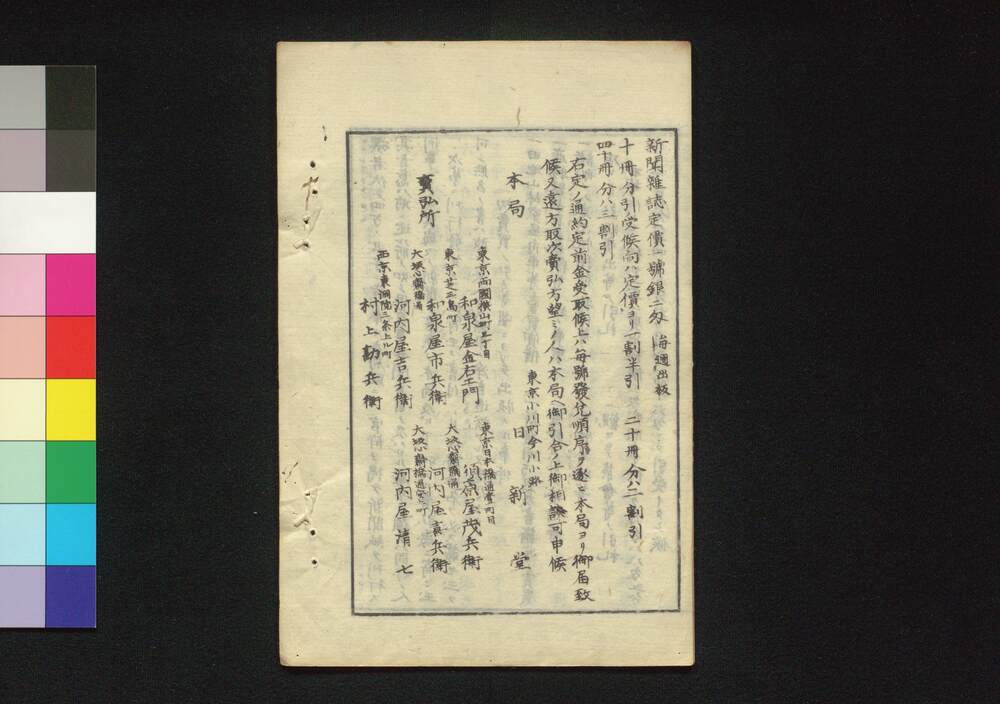 新聞雜誌定價一號銀二匁 海週出板
十冊分引受候向ハ定價ヨリ一割半引 二十冊分ハ二割引
四十冊分ハ三割引
右定ノ通約定前金受取候上ハ毎號發兌順序ヲ逐ヒ本局ヨリ御届致
候又遠方取次賣弘方望ミノ人ハ本局ヘ御引合ノ上御相談可申候
東京小川町今川小路
本局 日新堂
賣弘所
東京兩國横山町三丁目
和泉屋金右エ門
東京芝三島町
和泉屋市兵衛
大坂心齋橋通
河内屋吉兵衛
西京東洞院三条上ル町
村上勘兵衛
東京日本橋通壹町目
須原屋茂兵衛
大坂心齋橋通
河内屋喜兵衛
大坂心齋橋通安土町
河内屋清七